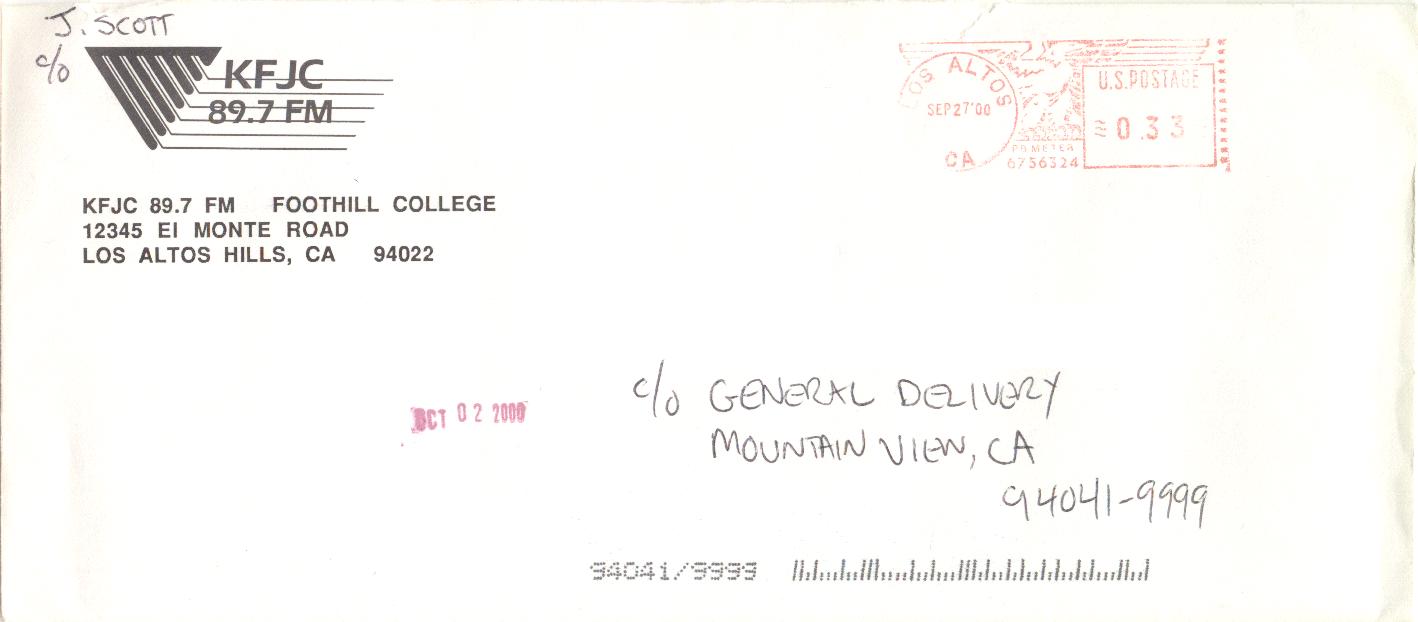 J. SCOTT
c/o
KFJC
89.7 FM
KFJC 89.7 FM FOOTHILL COLLEGE
12345 El MONTE ROAD
LOS ALTOS HILLS, CA 94022
LOS ALTOS
SEP 27 '00
CA
PB METER
6756324
U.S. POSTAGE
0.33
OCT 02 2000
c/o GENERAL DELIVERY
MOUNTAIN VIEW, CA
94041-9999
94041/9999